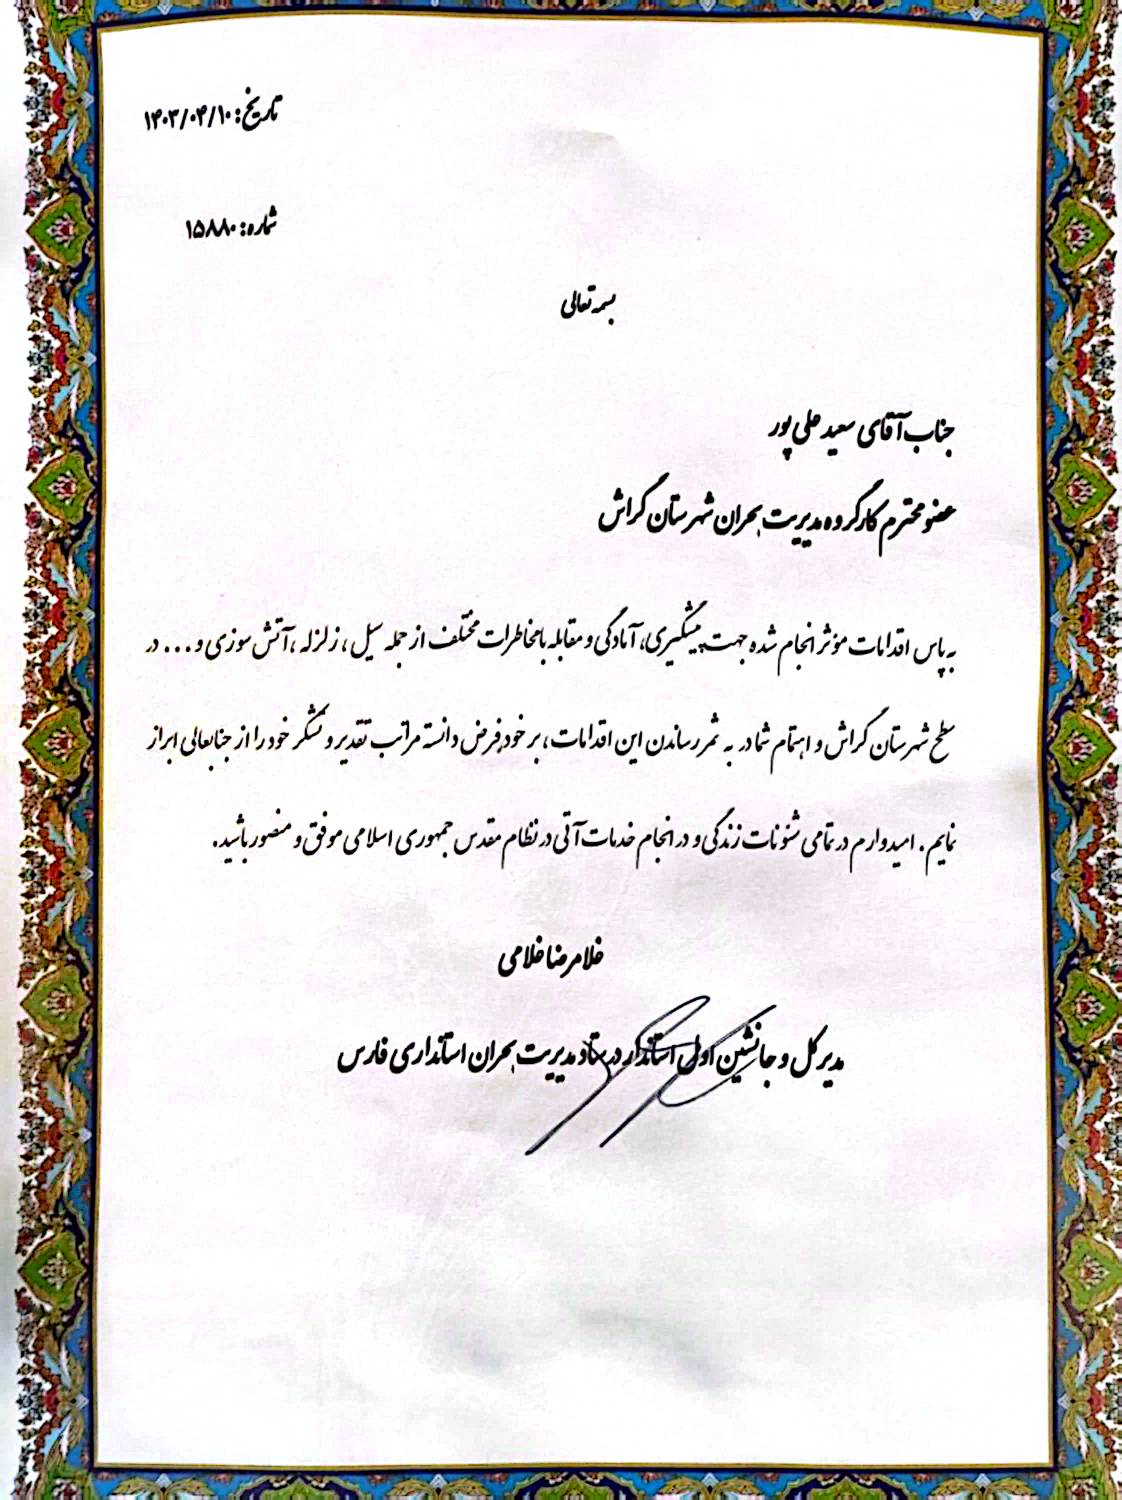 تاریخ: ۱۴۰۳/۰۴/۱۰
شماره: ۱۵۸۸۰
بسمه تعالی
جناب آقای سعید علی پور
عضو محترم کارگروه مدیریت بحران شهرستان گراش
به پاس اقدامات مؤثر انجام شده جهت پیشگیری، آمادگی و مقابله با مخاطرات مختلف از جمله سیل، زلزله، آتش سوزی و... در
سطح شهرستان گراش و اهتمام شما در به ثمر رساندن این اقدامات، بر خود فرض دانسته مراتب تقدیر و تشکر خود را از جنابعالی ابراز
نمایم. امیدوارم در تمامی شئونات زندگی و در انجام خدمات آتی در نظام مقدس جمهوری اسلامی موفق و منصور باشید.
غلامرضا غلامی
مدیرکل و جانشین اول استاندار در ستاد مدیریت بحران استانداری فارس